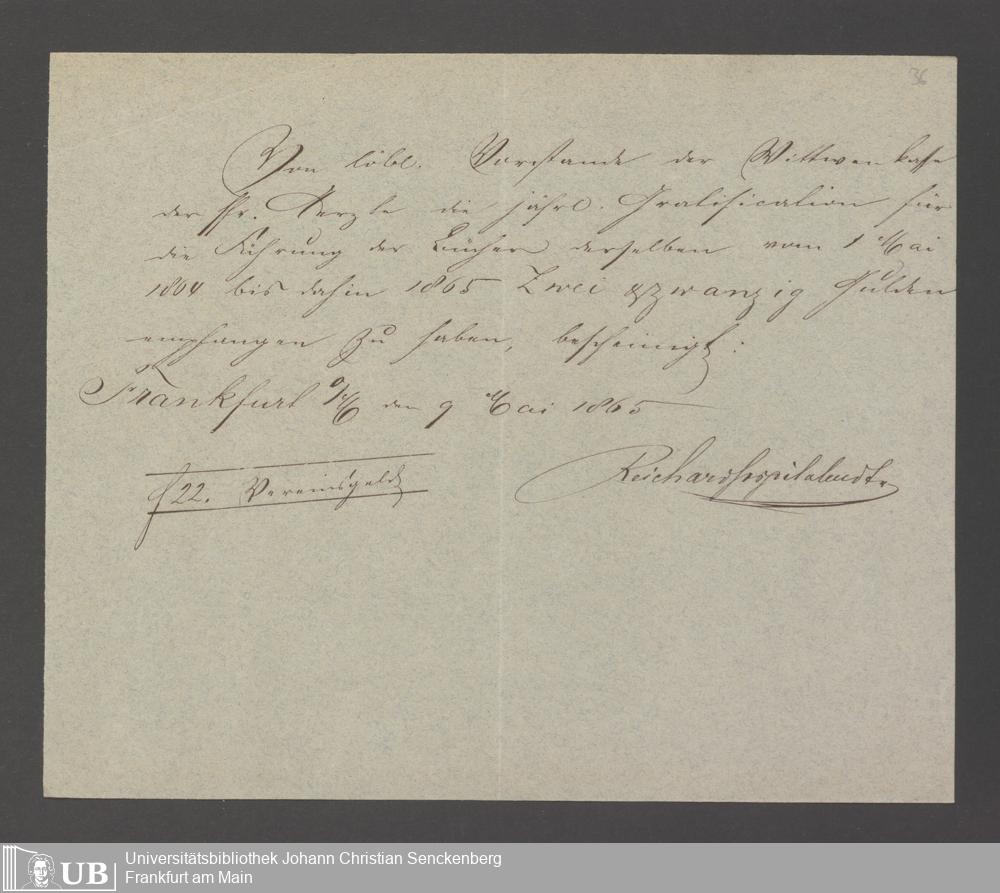 36
Von löbl. Vorstande der Wittwenkasse
der Hr. Aerzte die jährl. Gratification für
die Führung der Bücher derselben vom 1 Mai
1864 bis dahin 1865 Zwei &zwanzig Gulden
empfangen zu haben, bescheinigt:
Frankfurt a/M den 9 Mai 1865
f 22. Vereinsgeld
UB Universitätsbibliothek Johann Christian Senckenberg
Frankfurt am Main